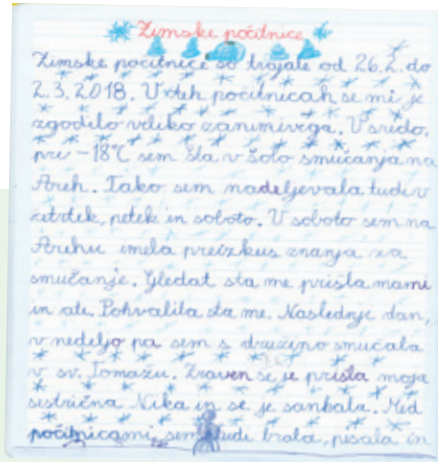 Zimske počitnice
Zimske počitnice so trajale od 26.2. do
2.3.2018. V teh počitnicah se mi je
zgodilo veliko zanimivega. V sredo,
pri -18°C sem šla v šolo smučanja na
Areh. Tako sem nadeljevala tudi v
četrtek, petek in soboto. V soboto sem na
Arehu imela preizkus znanja za
smučanje. Gledat sta me prišla mami
in ati. Pohvalila sta me. Naslednje dan,
v nedeljo pa sem z družino smučala
v sv. Tomažu. Zraven se je prišla moja
sestrična Nika in se je sankala. Med
počitnicami sem tudi brala, pisala in